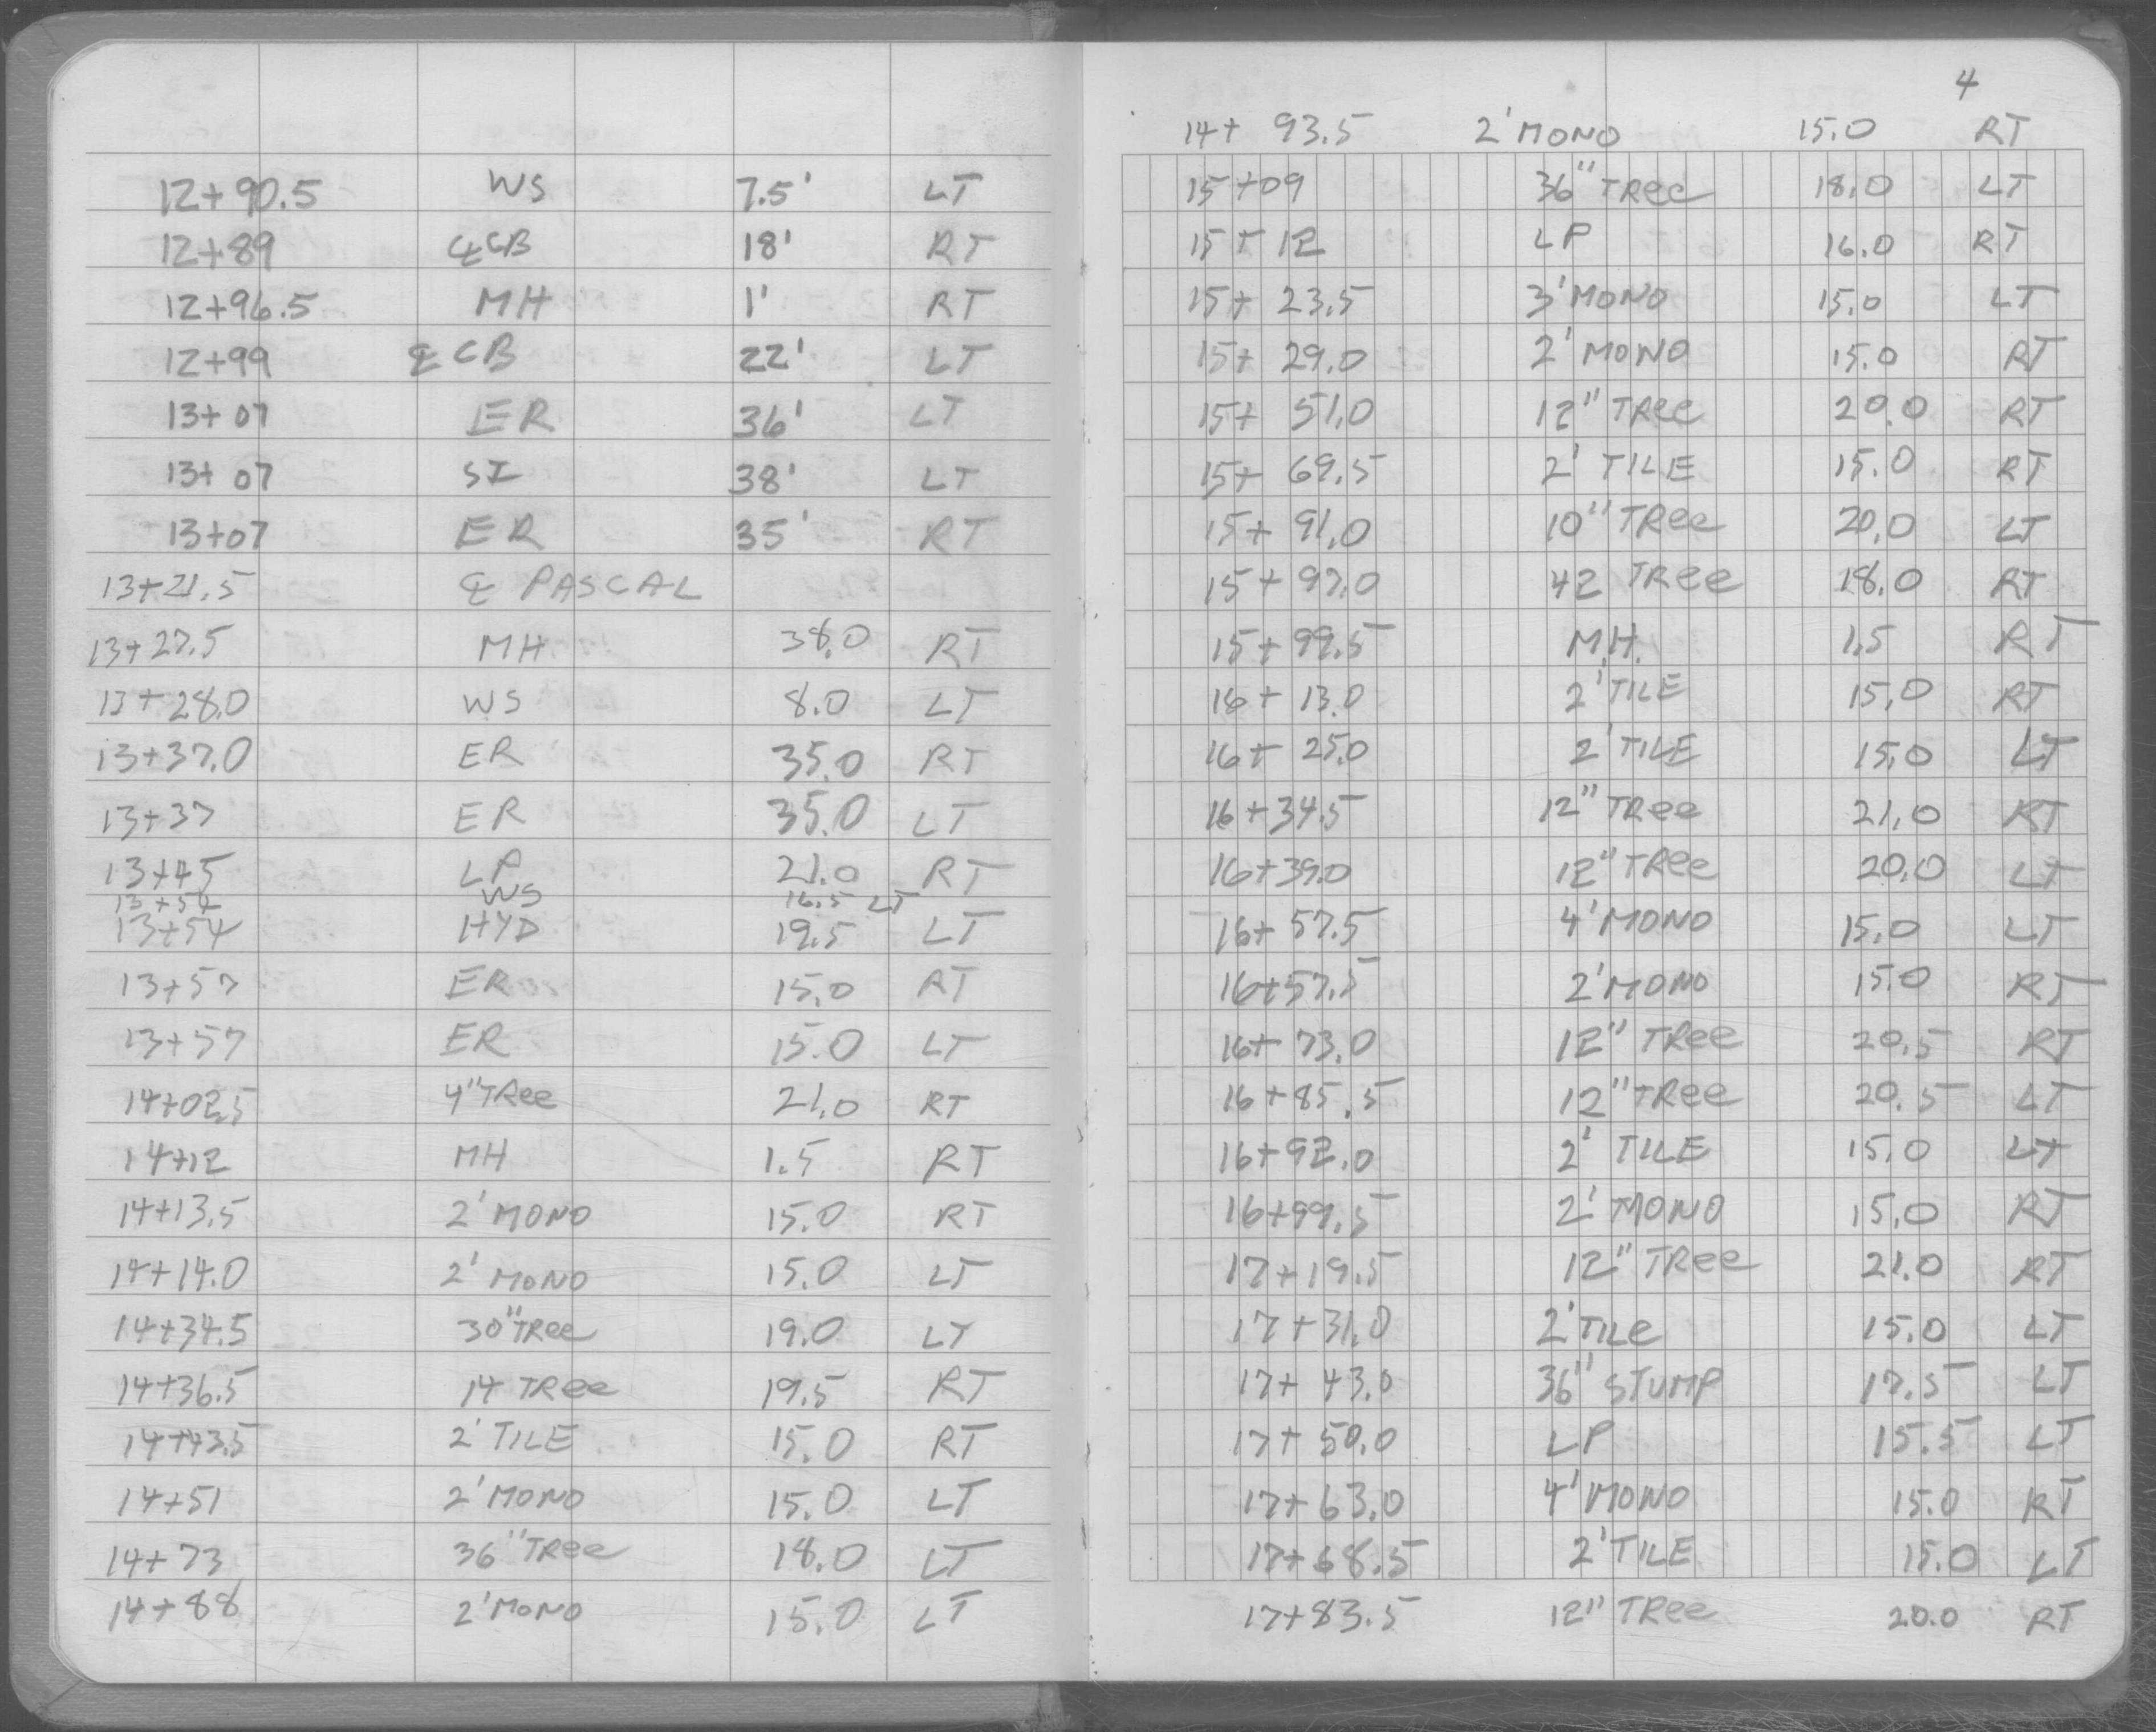 12+90.5 WS 7.5' LT
12+89 ℄ CB 18' RT
12+96.5 MH 1' RT
12+99 ℄ CB 22' LT
13+07 ER 36' LT
13+07 SI 38' LT
13+07 ER 35' RT
13+21.5 ℄ PASCAL
13+27.5 MH 38.0 RT
13+28.0 WS 8.0 LT
13+37.0 ER 35.0 RT
13+37 ER 35.0 LT
13+45 LP 21.0 RT
13+54 WS 16.5 LT
13+54 HYD 19.5 LT
13+57 ER 15.0 RT
13+57 ER 15.0 LT
14+02.5 4" TRee 21.0 RT
14+12 MH 1.5 RT
14+13.5 2' MONO 15.0 RT
14+14.0 2' MONO 15.0 LT
14+34.5 30" TRee 19.0 LT
14+36.5 14 TRee 19.5 RT
14+43.5 2' TILE 15.0 RT
14+51 2' MONO 15.0 LT
14+73 36" TRee 18.0 LT
14+88 2' MONO 15.0 LT
4
14+93.5 2' MONO 15.0 RT
15+09 36" TRee 18.0 LT
15+12 LP 16.0 RT
15+23.5 3' MONO 15.0 LT
15+29.0 2' MONO 15.0 RT
15+51.0 12" TRee 20.0 RT
15+69.5 2' TILE 15.0 RT
15+91.0 10" TRee 20.0 LT
15+97.0 42 TRee 18.0 RT
15+99.5 M.H. 1.5 RT
16+13.0 2' TILE 15.0 RT
16+25.0 2' TILE 15.0 LT
16+34.5 12" TRee 21.0 RT
16+39.0 12" TRee 20.0 LT
16+57.5 4' MONO 15.0 LT
16+57.5 2' MONO 15.0 RT
16+73.0 12" TRee 20.5 RT
16+85.5 12" TRee 20.5 LT
16+92.0 2' TILE 15.0 LT
16+99.5 2' MONO 15.0 RT
17+19.5 12" TRee 21.0 RT
17+31.0 2' TILe 15.0 LT
17+43.0 36" STUMP 17.5 LT
17+50.0 LP 15.5 LT
17+63.0 4' MONO 15.0 RT
17+68.5 2' TILE 15.0 LT
17+83.5 12" TRee 20.0 RT